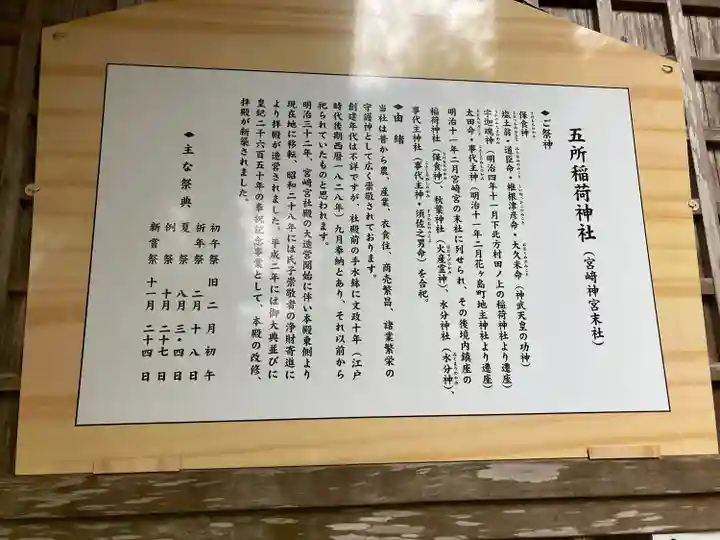 五所稲荷神社(宮﨑神宮末社)
◆ご祭神
保食神
塩土翁・道臣命・椎根津彦命・大久米命(神武天皇の功神)
宇迦魂神(明治四年十一月下北方村田ノ上の稲荷神社より遷座)
太田命・事代主神(明治十一年二月花ヶ島町地主神社より遷座)
明治十一年二月宮崎宮の末社に列せられ、その後境内鎮座の
稲荷神社(保食神)、秋葉神社(火産霊神)、水分神社(水分神)、
事代主神社(事代主神・須佐之男命)を合祀。
◆由緒
当社は昔から農、産業、衣食住、商売繁昌、諸業繁栄の
守護神として広く崇敬されております。
創建年代は不詳ですが、社殿前の手水鉢に文政十年(江戸
時代後期西暦一八二八年)九月奉納とあり、それ以前から
祀られていたものと思われます。
明治三十二年、宮崎宮社殿の大造営開始に伴い本殿東側より
現在地に移転、昭和二十八年には氏子崇敬者の浄財寄進に
より拝殿が造営されました。平成二年には御大典並びに
皇紀二千六百五十年の奉祝記念事業として、本殿の改修、
拝殿が新築されました。
◆主な祭典
初午祭 旧二月初午
祈年祭 二月十八日
夏祭 八月三・四日
例祭 十月二十七日
新嘗祭 十一月二十四日